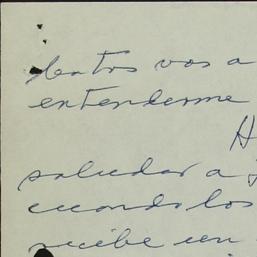 datos vos a
entenderme
H
saludar a
cuando los
recibe un